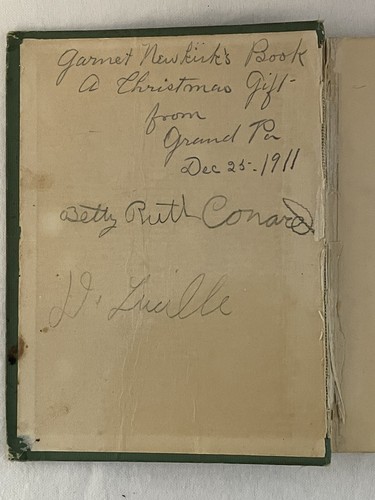 Garnet Newkirk's Book
A Christmas Gift-
from
Grand Pa
Dec 25-1911
Betty Ruth Conard
Lucille